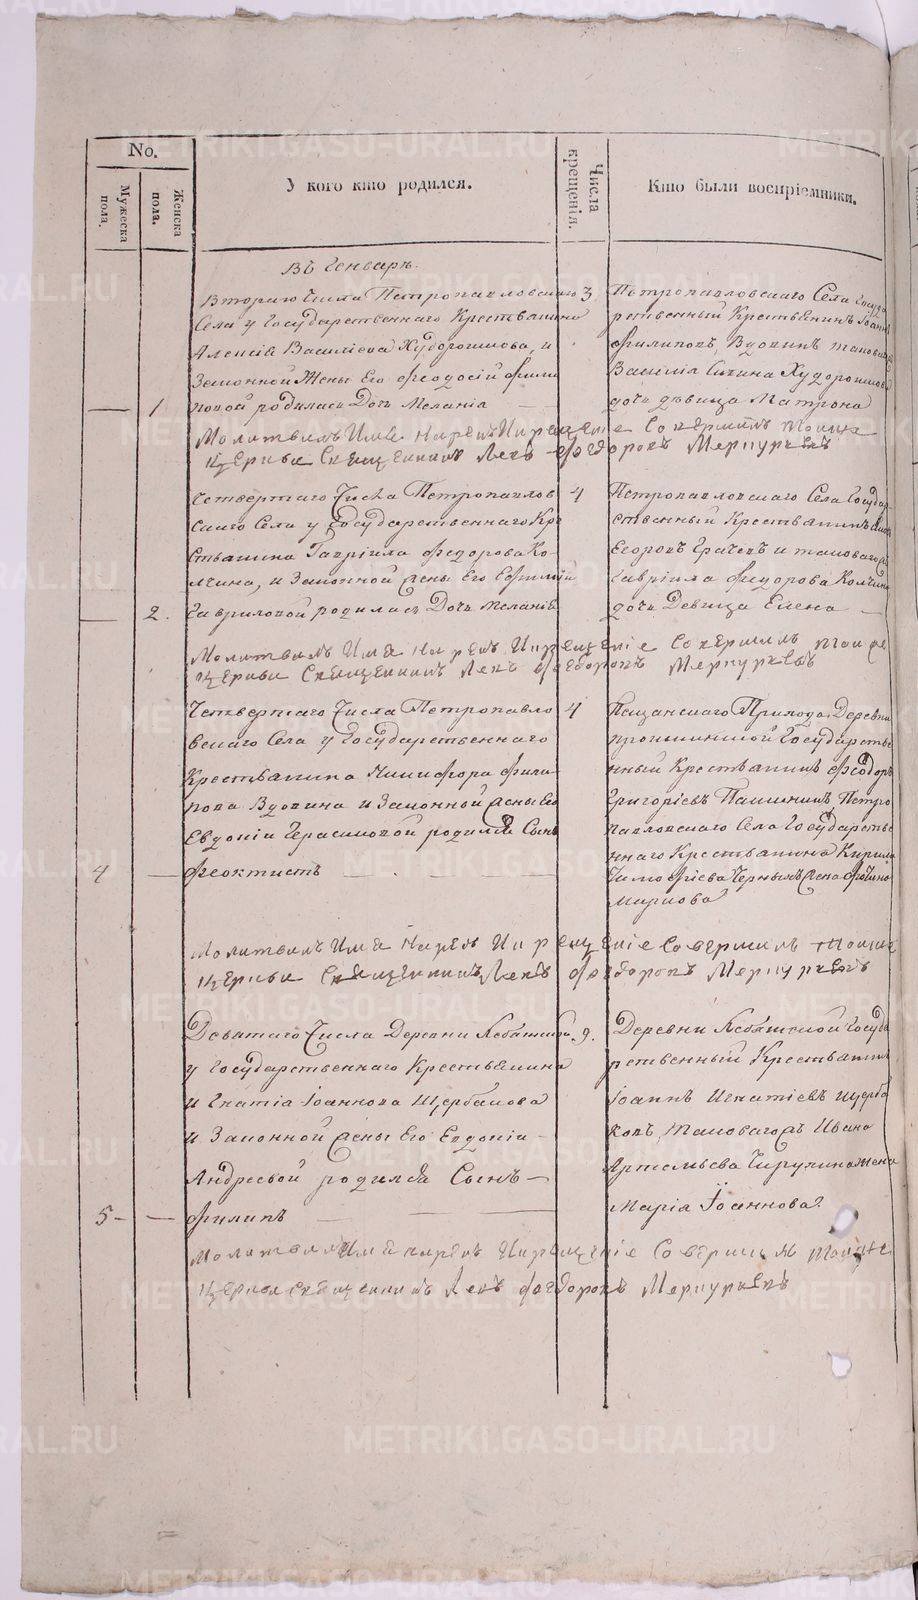 No.
Мужеска пола.
Женска пола.
У кого кто родился.
Числа крещенія.
Кто были воспріемники.
Въ Генварѣ.
Втораго Числа Петропавловскаго 3
Села у Государственнаго Крестьянина
Алексія Василіева Худорошкова, и
Законной Жены Его Феодосіи Фили
повой родилась Дочь Меланіа
1
Петропавловскаго Села Госуда
рственный Крестьянинъ Іоаннъ
Филиповъ Вдовинъ таковаго
Василія Худорошкова
дочь дѣвица Матрона
Молитвилъ Имя Нарекъ Икрещеніе Совершилъ тоя
Церкви Священникъ Левъ Феодоровъ Меркурьевъ
Четвертаго Числа Петропавлов
скаго Села у Государственнаго Кре
стьянина Гавріила Федорова Кол
чина, и Законной Жены Его Евфиміи
Гавриловой родилась Дочь Меланія
2.
4
Петропавловскаго Села Государ
ственный Крестьянинъ
Егоровъ Грачевъ и таковагожъ
Гавріила Федорова Колчина
дочь Девица Елена
Молитвилъ Имя Нарекъ Икрещеніе Совершилъ тоя же
Церкви Священникъ Левъ Феодоровъ Меркурьевъ
Четвертаго Числа Петропавло
вскаго Села у Государственнаго
Крестьянина Никифора Фили
пова Вдовина и Законной Жены Его
Евдокіи Герасимовой родился Сынъ
4
Феоктистъ
4
Пещанскаго Прихода Деревни
Государстве
нный Крестьянинъ Феодоръ
Григоріевъ Пашнинъ Петро
павловскаго Села Государстве
ннаго Крестьянина Кирила
Тимофѣева Черныхъ Жена
Маркова
Молитвилъ Имя Нарекъ Икрещеніе Совершилъ тоя
Церкви Священникъ Левъ Феодоровъ Меркурьевъ
Девятаго Числа Деревни 9.
у Государственнаго Крестьянина
Игнатіа Іоаннова Щербакова
и Законной Жены Его Евдокіи
Андреевой родился Сынъ
5
Филипъ
Деревни Госуда
рственный Крестьянинъ
Іоаннъ Игнатіевъ Щерба
ковъ, таковагожъ Ивана
Артемьева Жена
Маріа Іоаннова.
Молитвилъ Имя нарекъ Икрещеніе Совершилъ тоя же
Церкви Священникъ Левъ Феодоровъ Меркурьевъ
METRIKI.GASO-URAL.RU